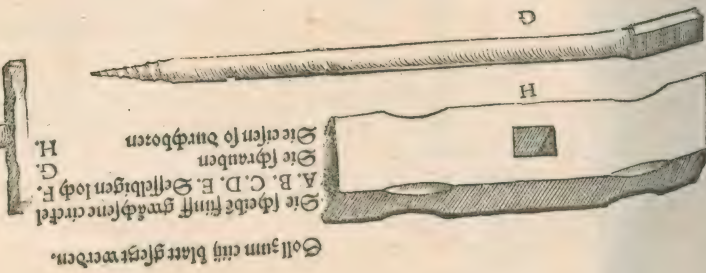 Soll zum ciiij blatt gſetzt werden.
Die ſcheibē fünff gwächſene circkel
A. B. C. D. E. Deſſelbigen loch F.
Die ſchrauben G.
Die eiſen ſo durchboren H.
H
G